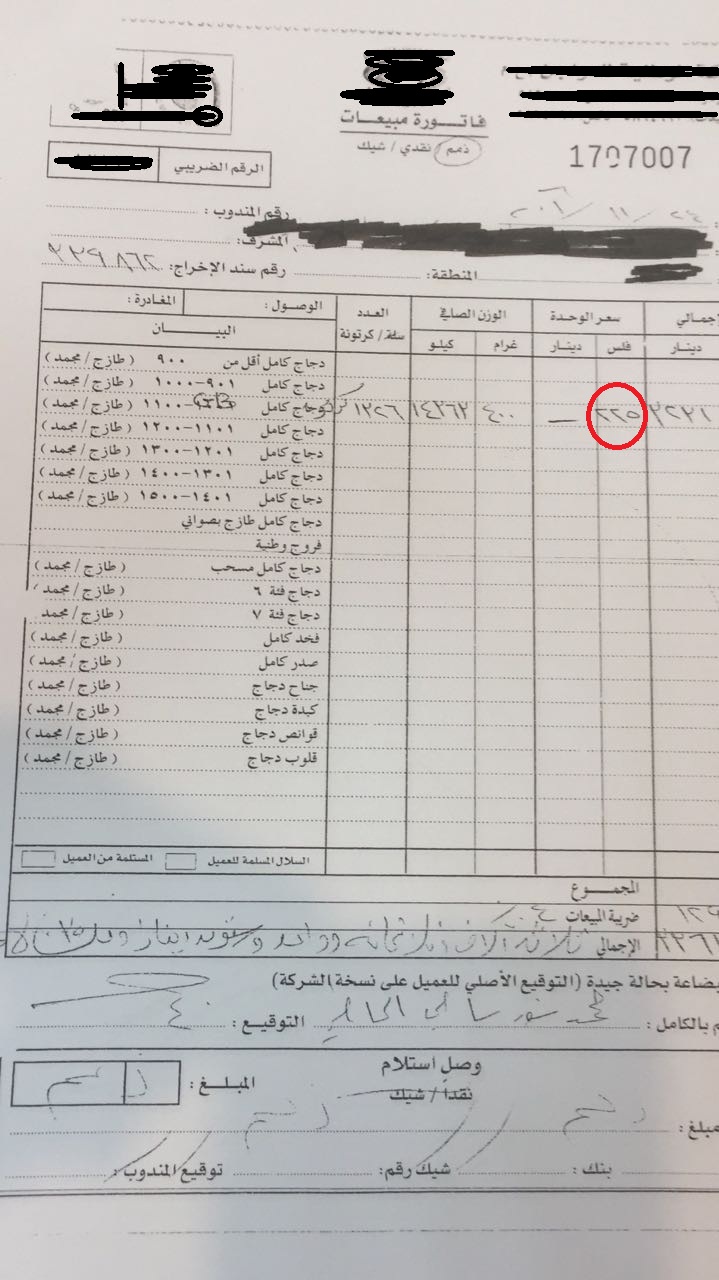 فاتورة مبيعات
ذمم / نقدي / شيك
1707007
الرقم الضريبي
٢٤ / ١١ /
رقم المندوب :
المشرف :
رقم سند الإخراج: ٣٣٩٨٦٢
المنطقة:
الوصول : المغادرة :
البيـــــان
العدد سلة / كرتونة
الوزن الصافي
كيلو غرام
سعر الوحدة
دينار فلس
دينار
دجاج كامل أقل من ٩٠٠ ( طازج / مجمد )
دجاج كامل ٩٠١-١٠٠٠ ( طازج / مجمد )
دجاج كامل ١١٠٠ ( طازج / مجمد ) ١٣٢٦ ١٤٣٦٢ ٤٠٠ — ٢٢٥
دجاج كامل ١١٠١-١٢٠٠ ( طازج / مجمد )
دجاج كامل ١٢٠١-١٣٠٠ ( طازج / مجمد )
دجاج كامل ١٣٠١-١٤٠٠ ( طازج / مجمد )
دجاج كامل ١٤٠١-١٥٠٠ ( طازج / مجمد )
دجاج كامل طازج بصواني
فروج وطنية
دجاج كامل مسحب ( طازج / مجمد )
دجاج فئة ٦ ( طازج / مجمد )
دجاج فئة ٧ ( طازج / مجمد
فخد كامل ( طازج / مجمد )
صدر كامل ( طازج / مجمد )
جناح دجاج ( طازج / مجمد )
كبدة دجاج ( طازج / مجمد )
قوانص دجاج ( طازج / مجمد )
قلوب دجاج ( طازج / مجمد )
السلال المسلمة للعميل المستلمة من العميل
المجموع
ضريبة المبيعات
الإجمالي ثلاثة آلاف وثلاثمائة وواحد وستون دينار
بضاعة بحالة جيدة (التوقيع الأصلي للعميل على نسخة الشركة)
بالكامل : التوقيع :
وصل استلام
نقداً / شيك
المبلـغ :
مبلغ :
بنك : شيك رقم: توقيع المندوب :